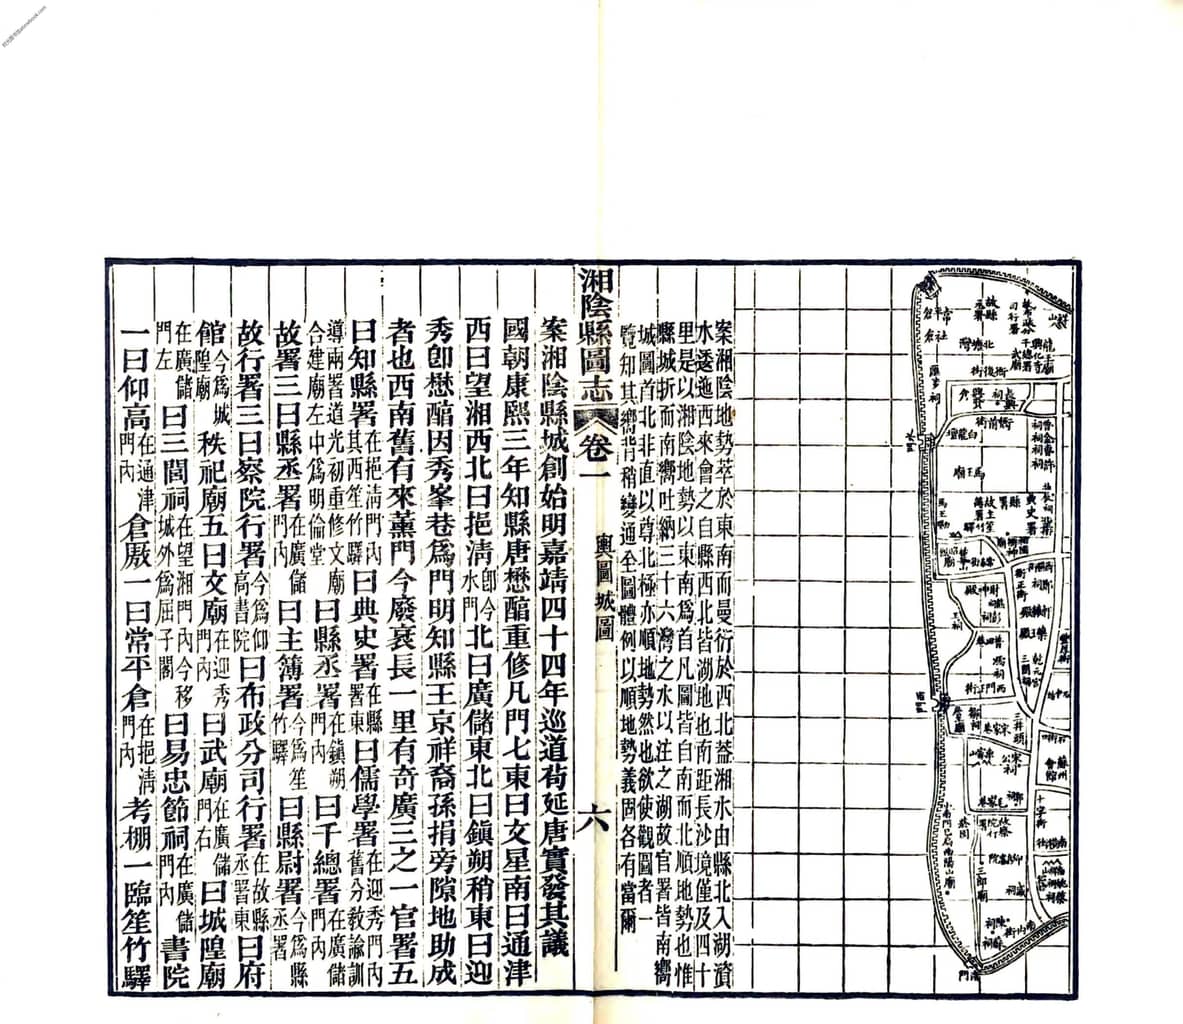 案湘陰地勢萃於東南而曼衍於西北葢湘水由縣北入湖資
水逶迤西來會之自縣西北皆湖地也南距長沙境僅及四十
里是以湘陰地勢以東南爲首凡圖皆自南而北順地勢也惟
縣城折而南嚮吐納三十六灣之水以注之湖故官署皆南嚮
城圖首北非直以尊北極亦順地勢然也欲使觀圖者一
覽知其嚮背稍變通至圖體例以順地勢義固各有當爾
湘陰縣圖志
卷一
輿圖 城圖
六
案湘陰縣城創始明嘉靖四十四年巡道荀延唐實發其議
國朝康熙三年知縣唐懋醕重修凡門七東曰文星南曰通津
西曰望湘西北曰挹清卽今水門北曰廣儲東北曰鎭朔稍東曰迎
秀卽懋醕因秀峯巷爲門明知縣王京祥裔孫捐旁隙地助成
者也西南舊有來薰門今廢袤長一里有奇廣三之一官署五
曰知縣署在挹淸門內其西笙竹驛曰典史署在縣署東曰儒學署在迎秀門內舊分敎諭訓
導兩署道光初重修文廟合建廟左中爲明倫堂曰縣丞署在鎭朔門內曰千總署在廣儲門內
故署三曰縣丞署在廣儲門內曰主簿署今爲笙竹驛曰縣尉署今爲縣丞署
故行署三曰察院行署今爲仰高書院曰布政分司行署在故縣丞署東曰府
館今爲城隍廟秩祀廟五曰文廟在迎秀門內曰武廟在廣儲門右曰城隍廟
在廣儲門左曰三閭祠在望湘門內今移城外爲屈子閣曰易忠節祠在廣儲門內書院
一曰仰高在通津門內倉厫一曰常平倉在挹清門內考棚一臨笙竹驛
故縣丞署
常平倉
社倉
北塘灣
衙後街
武廟
千總署
衙前街
白龍壇
馬王廟
縣署
典史署
西門正街
三井頭
宋家巷
蘇州會館
十字街
毛家巷
三郎廟
南門